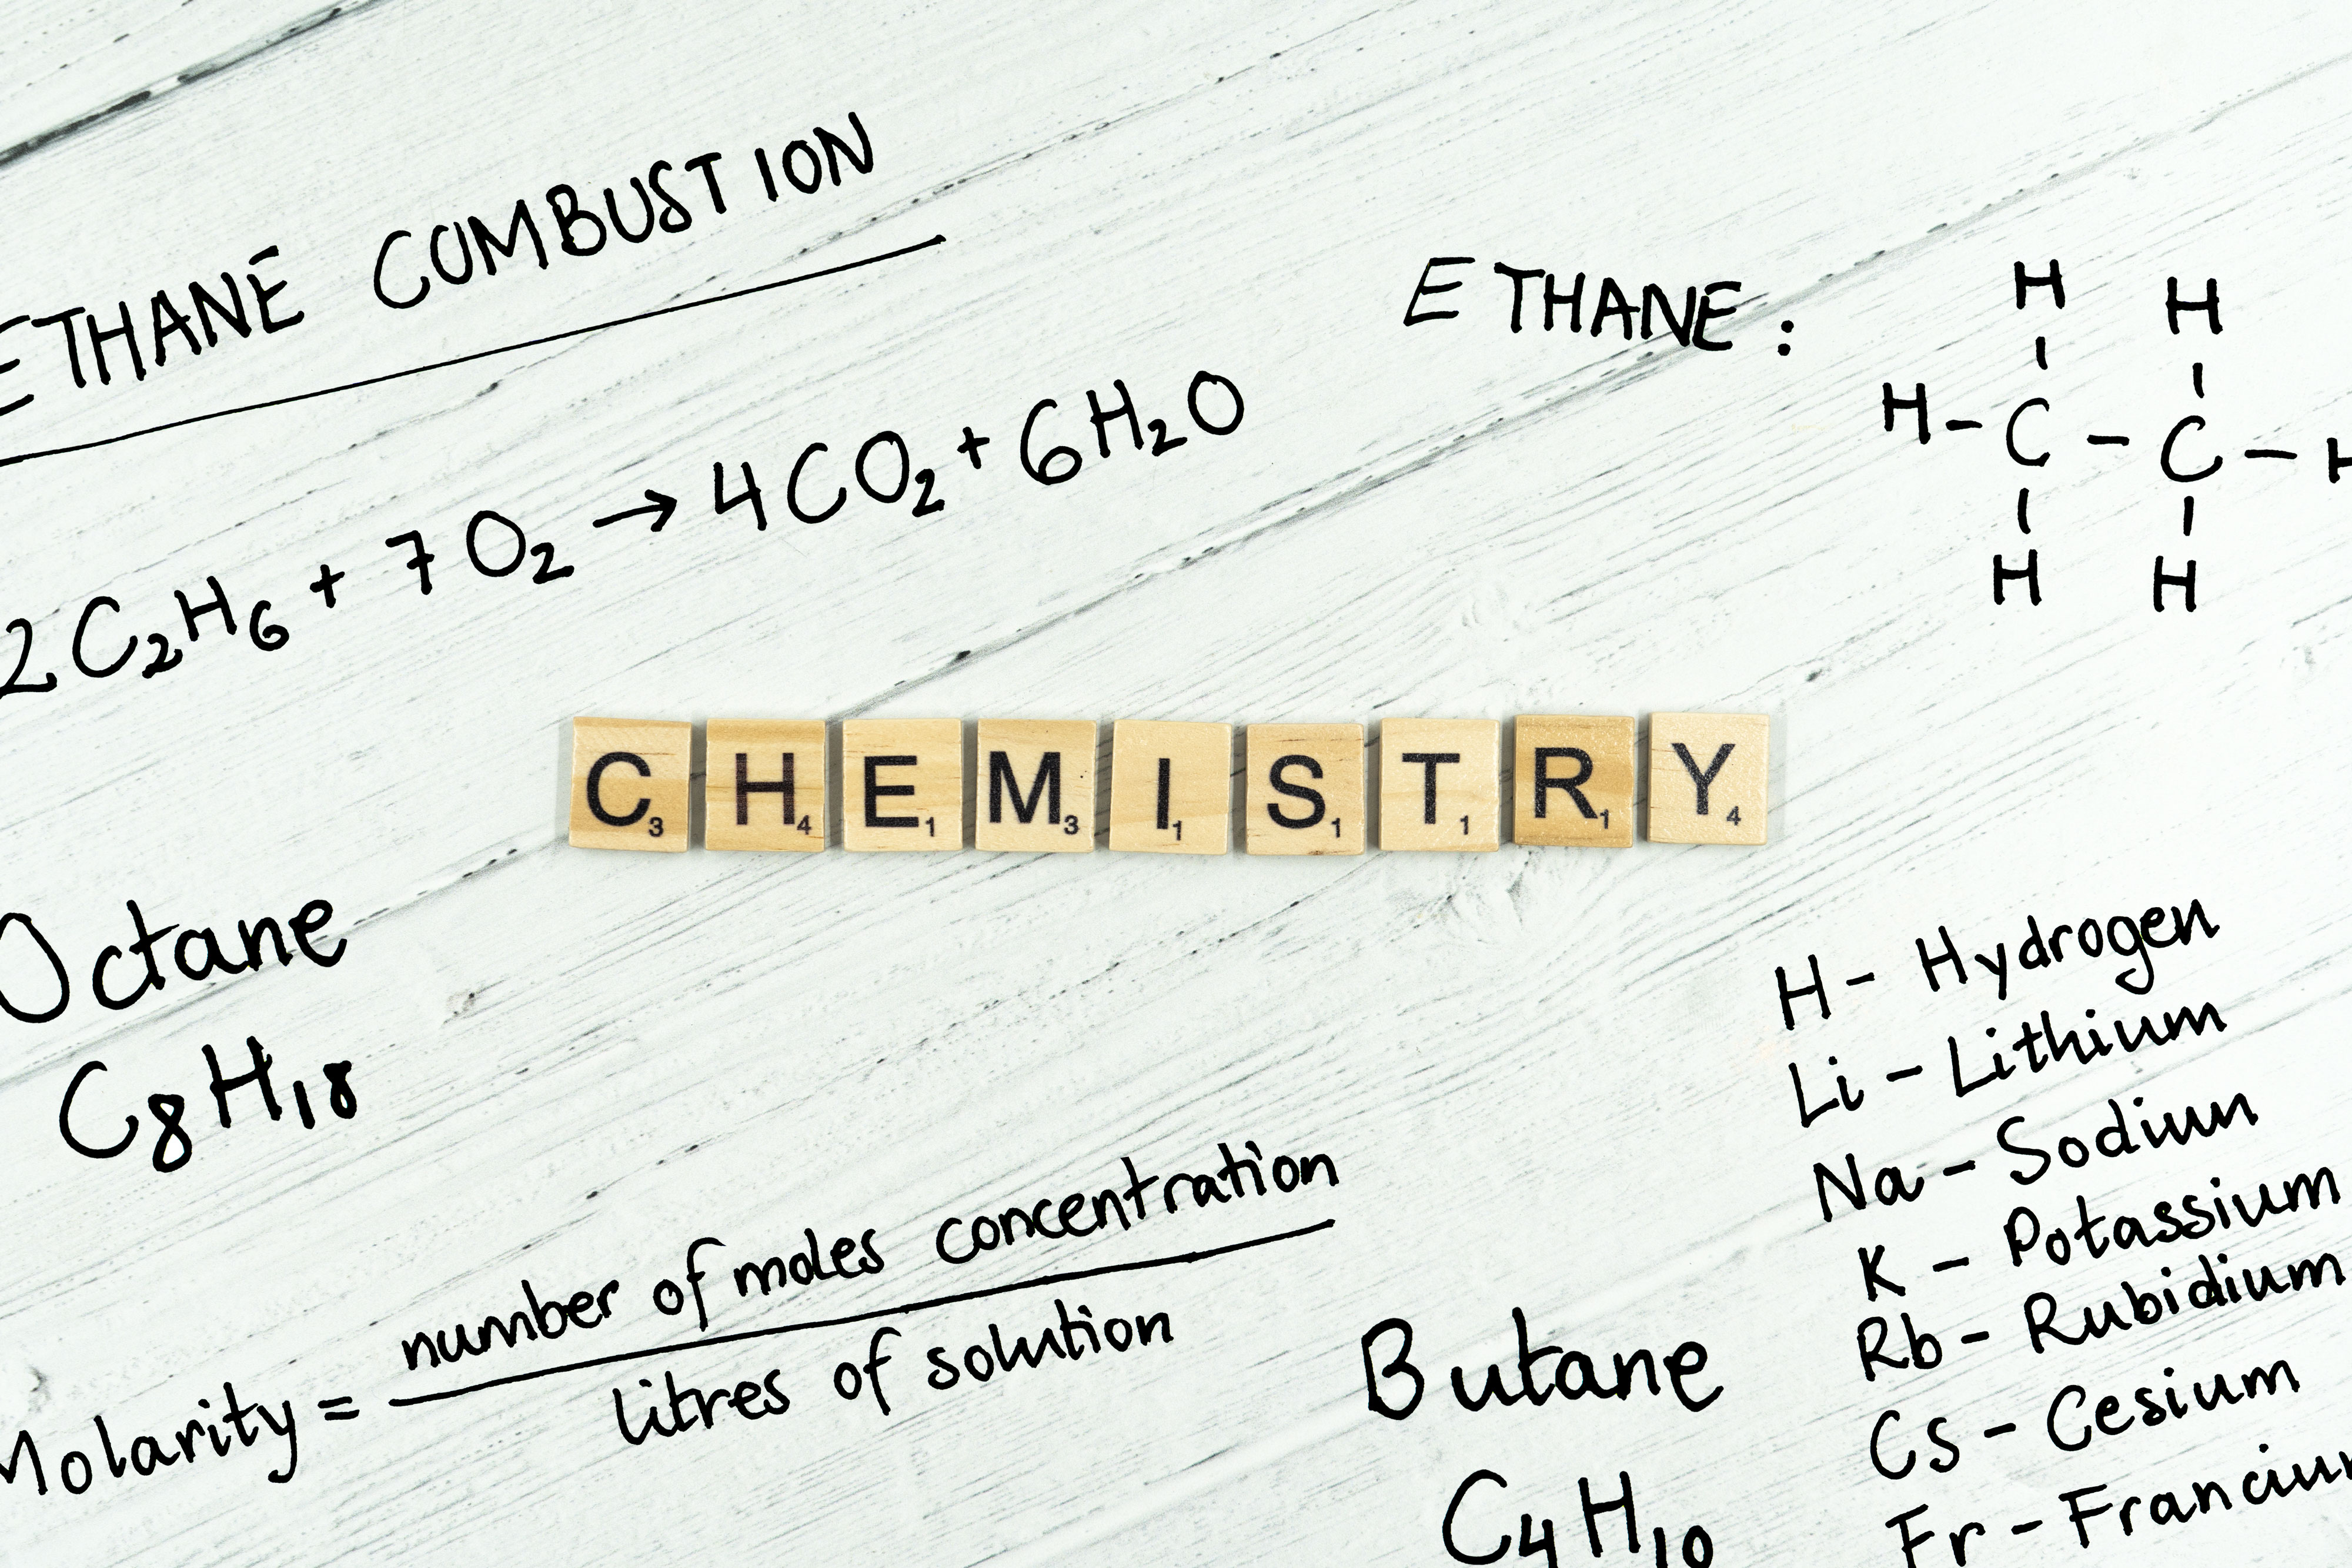 ETHANE COMBUSTION
2C₂H₆ + 7O₂ → 4CO₂ + 6H₂O
ETHANE:
H H
H - C - C - H
H H
C₃ H₄ E₁ M₃ I₁ S₁ T₁ R₁ Y₄
Octane
C₈H₁₈
Molarity = number of moles concentration
litres of solution
Butane
C₄H₁₀
H - Hydrogen
Li - Lithium
Na - Sodium
K - Potassium
Rb - Rubidium
Cs - Cesium
Fr - Francium